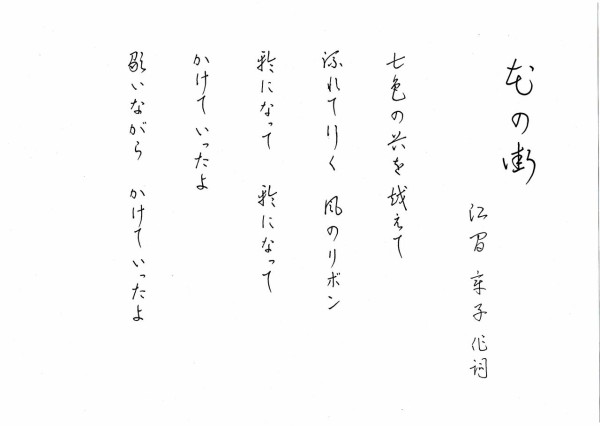 花の街
江間章子 作詞
七色の谷を越えて
流れて行く 風のリボン
輪になって 輪になって
かけていったよ
歌いながら かけていったよ